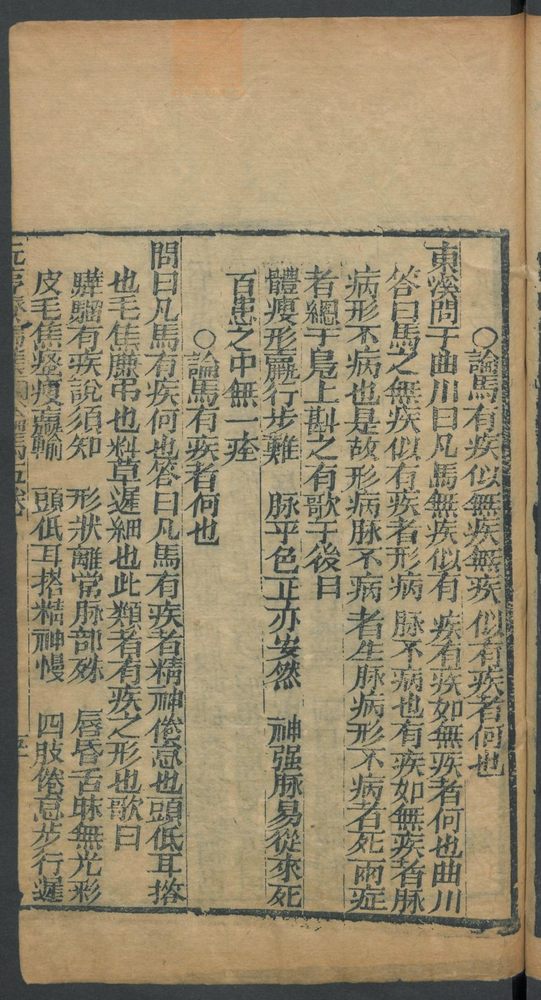 ○論馬有疾似無疾無疾似有疾者何也
東溪問于曲川曰凡馬無疾似有疾有疾如無疾者何也曲川
答曰馬之無疾似有疾者形病脉不病也有疾如無疾者脉
病形不病也是故形病脉不病者生脉病形不病者死兩症
者總于鳧上斟之有歌于後曰
體瘦形羸行步難　脉平色正亦安然　神强脉易從來死
百患之中無一痊
○論馬有疾者何也
問曰凡馬有疾何也答曰凡馬有疾者精神倦怠也頭低耳搭
也毛焦膁吊也料草遲細也此類者有疾之形也歌曰
驊騮有疾說須知　形狀離常脉部殊　唇昏舌昧無光彩
皮毛焦瘦羸　頭低耳搭精神慢　四肢倦怠步行遲